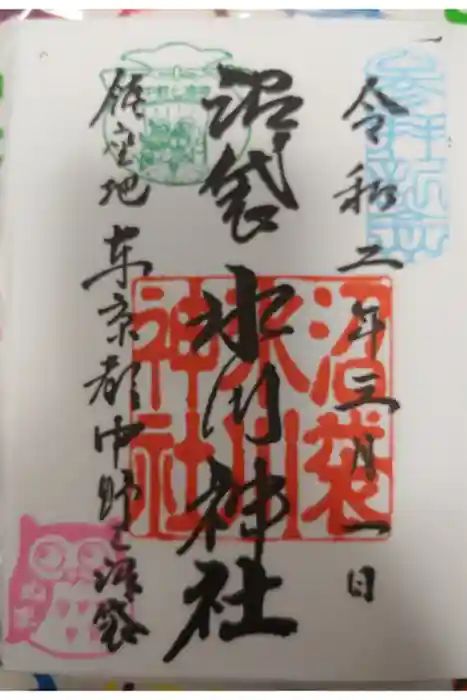 参拝記念
令和二年三月一日
沼袋氷川神社
沼袋氷川神社
鎮座地 東京都中野区沼袋